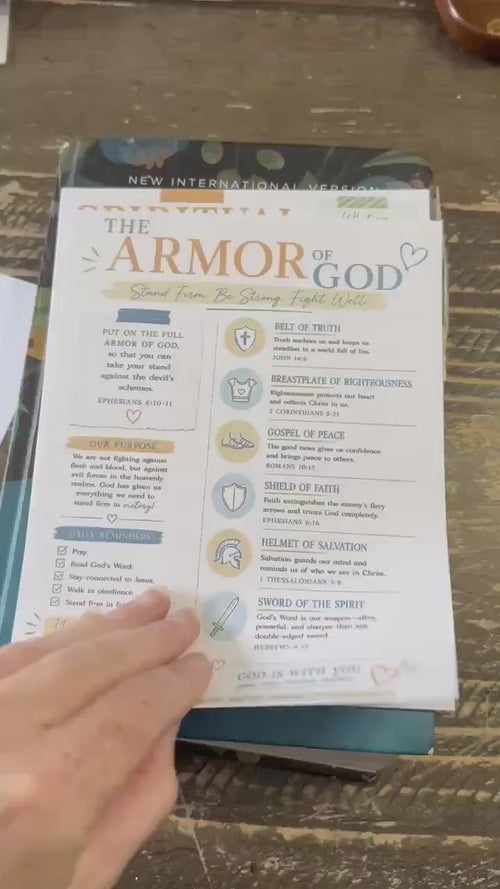 NEW INTERNATIONAL VERSION
SPIRITUAL
THE
ARMOR OF
GOD
Stand Firm, Be Strong, Fight Well
PUT ON THE FULL
ARMOR OF GOD,
so that you can
take your stand
against the devil's
schemes.
EPHESIANS 6:10-11
OUR PURPOSE
We are not fighting against
flesh and blood, but against
evil forces in the heavenly
realms. God has given us
everything we need to
stand firm in victory!
DAILY REMINDERS
Pray
Read God's Word
Stay connected to Jesus
Walk in obedience
Stand firm in
BELT OF TRUTH
Truth anchors us and keeps us
steadfast in a world full of lies.
JOHN 14:6
BREASTPLATE OF RIGHTEOUSNESS
Righteousness protects our heart
and reflects Christ in us.
2 CORINTHIANS 5:21
GOSPEL OF PEACE
The good news gives us confidence
and brings peace to others.
ROMANS 10:15
SHIELD OF FAITH
Faith extinguishes the enemy's fiery
arrows and trusts God completely.
EPHESIANS 6:16
HELMET OF SALVATION
Salvation guards our mind and
reminds us of who we are in Christ.
1 THESSALONIANS 5:8
SWORD OF THE SPIRIT
God's Word is our weapon—alive,
powerful, and sharper than any
double-edged sword.
HEBREWS 4:12
GOD IS WITH YOU